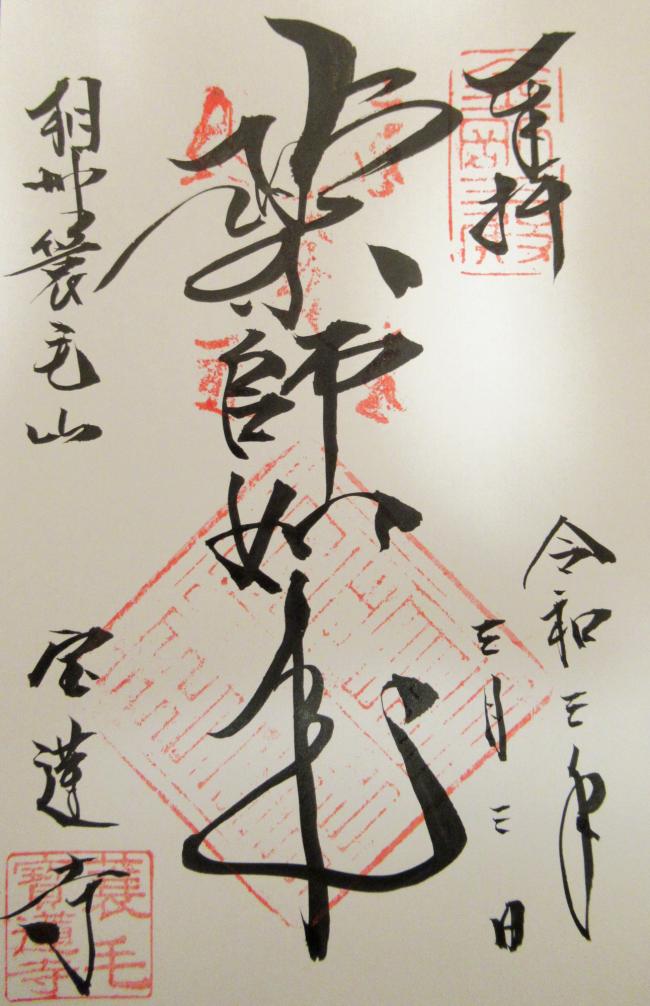 奉拝
令和三年
三月三日
薬師如来
相州蓑毛山
宝蓮寺
蓑毛
寶蓮寺